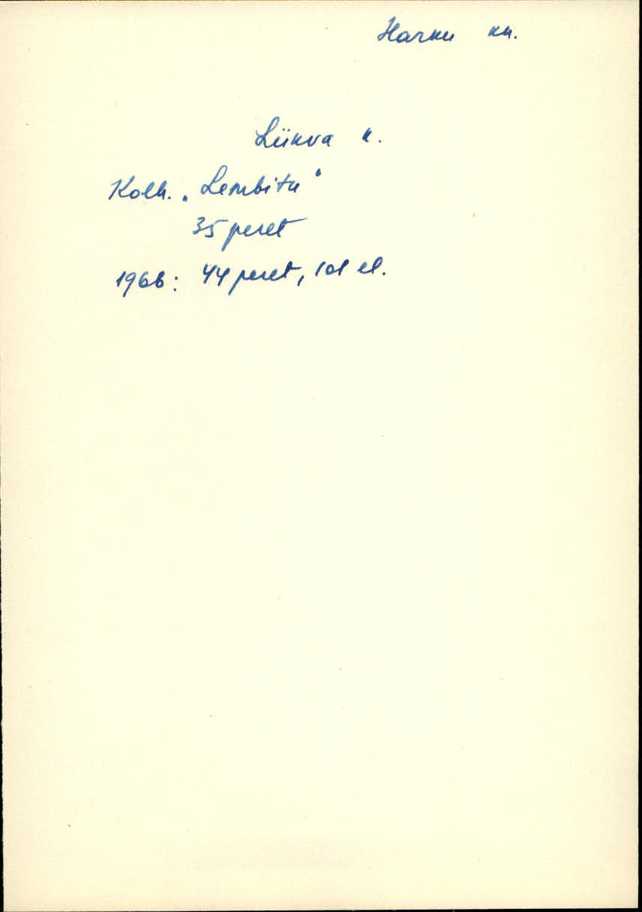 Harku kn.
Liikva k.
Kolh. „Lembitu"
35 peret
1966: 44 peret, 101 el.